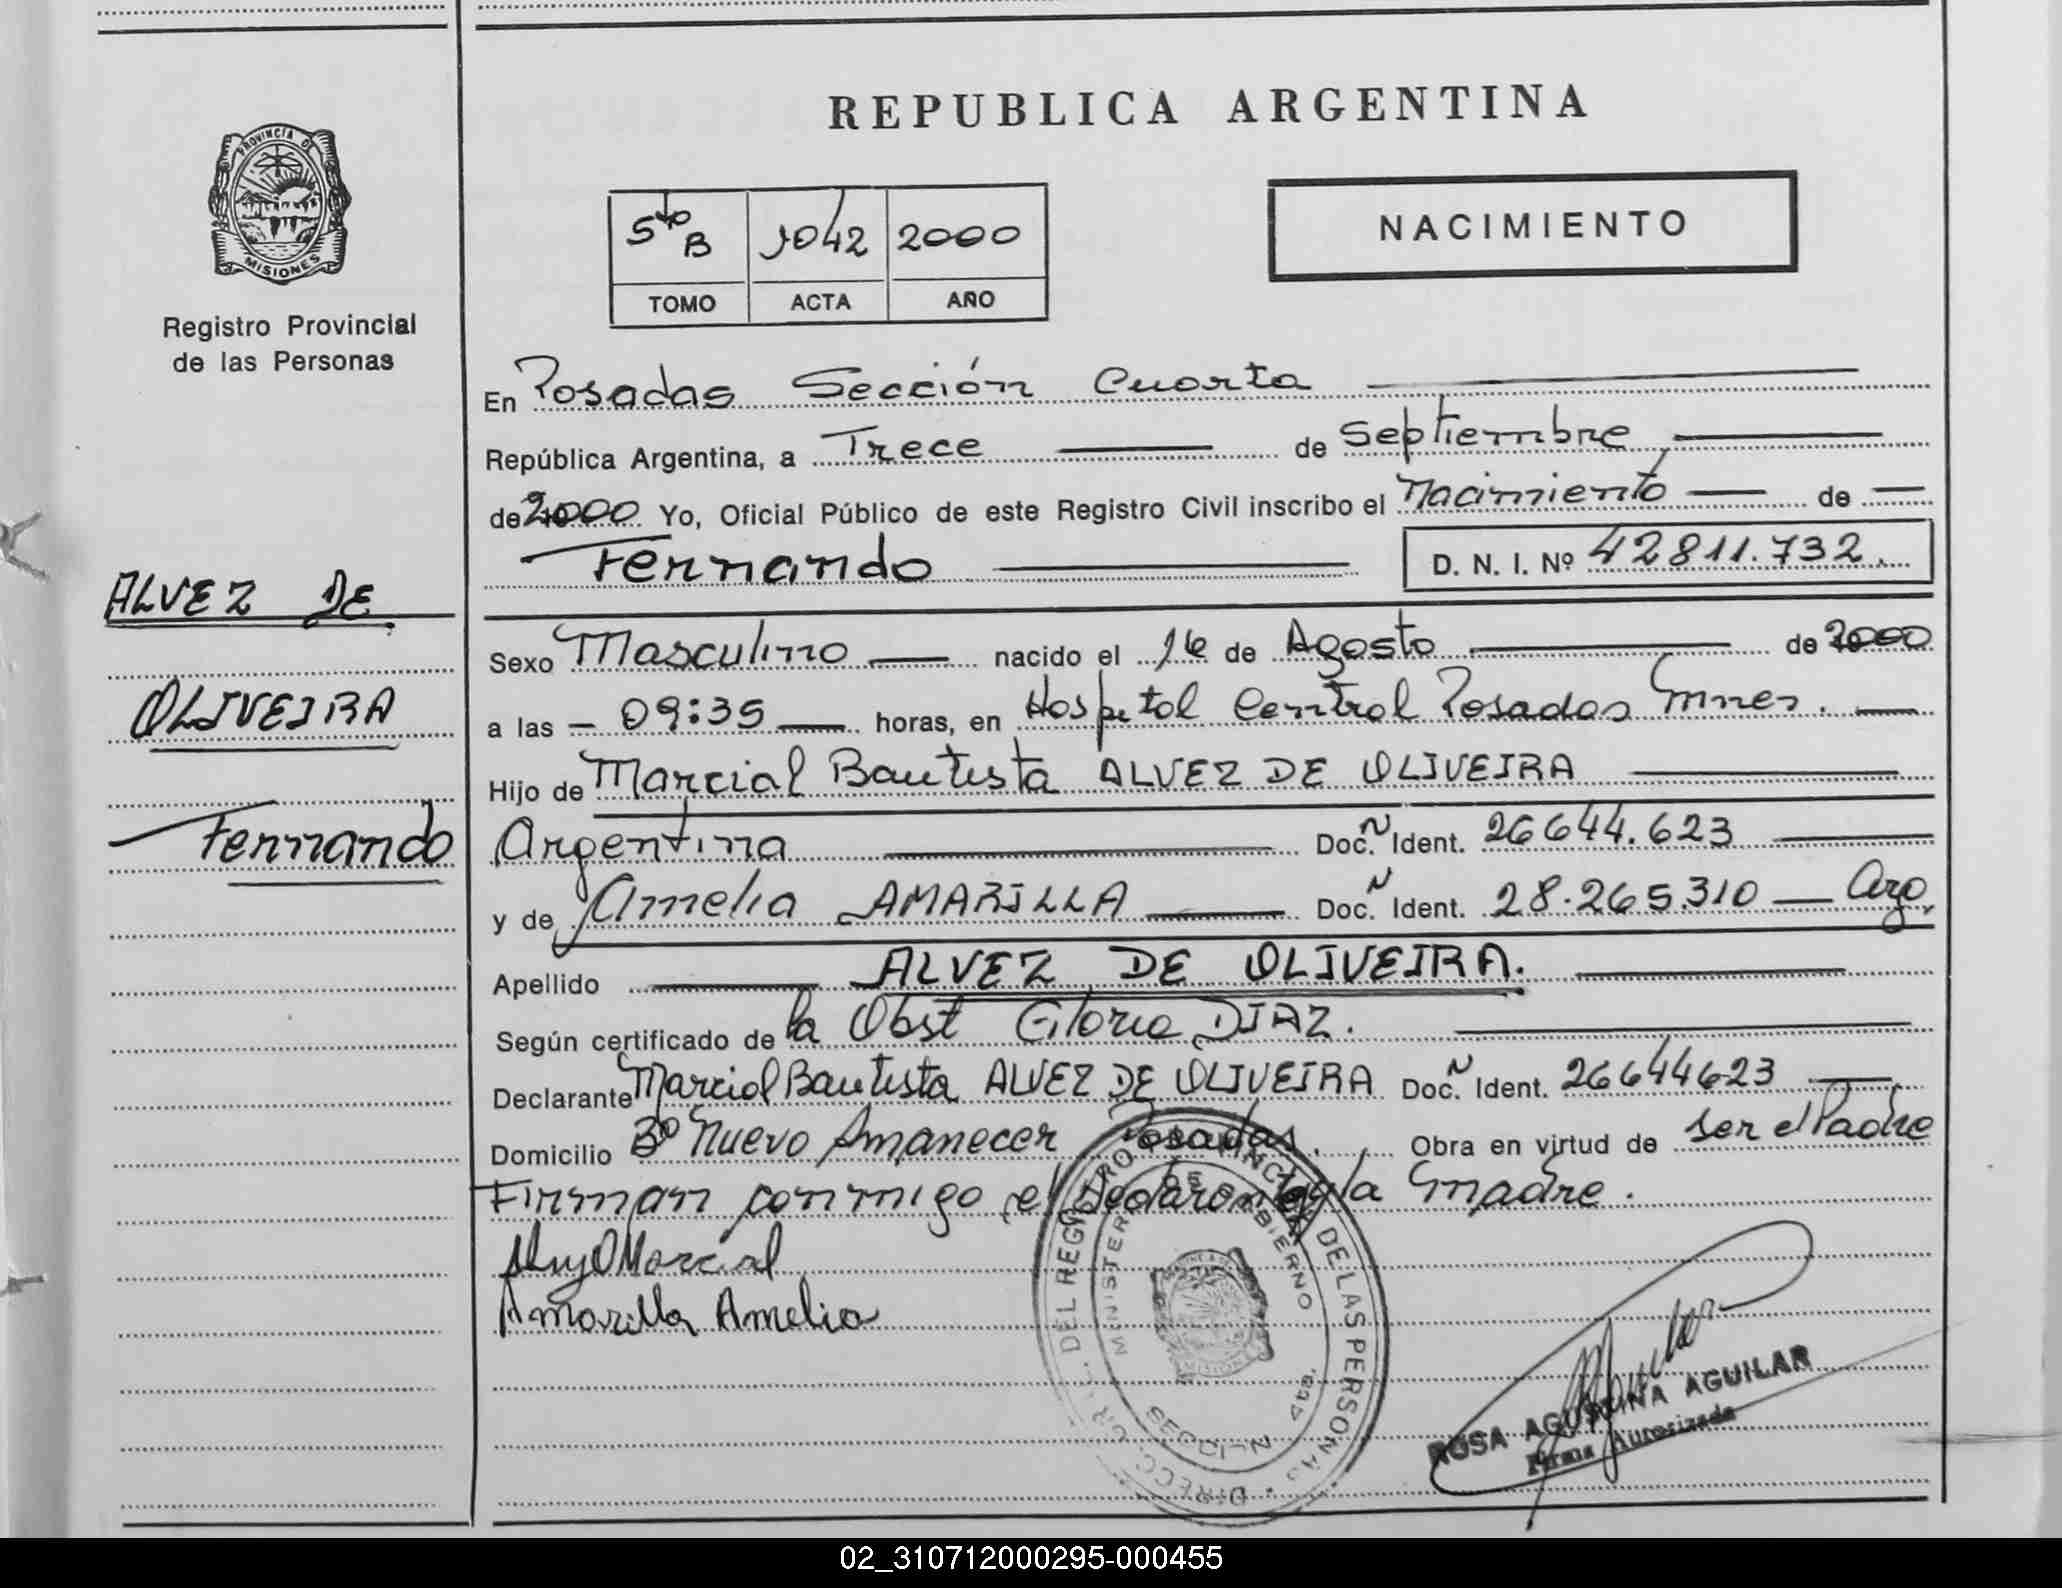 REPUBLICA ARGENTINA
PROVINCIA DE
MISIONES
Registro Provincial
de las Personas
5to B 1042 2000
TOMO ACTA AÑO
NACIMIENTO
En Posadas Sección Cuarta
República Argentina, a Trece de Septiembre
de 2000 Yo, Oficial Público de este Registro Civil inscribo el Nacimiento de
Fernando D. N. I. Nº 42811.732.
ALVEZ DE
OLIVEIRA
Fernando
Sexo Masculino nacido el 16 de Agosto de 2000
a las 09:35 horas, en Hospital Central Posadas Mnes.
Hijo de Marcial Bautista ALVEZ DE OLIVEIRA
Argentina Doc. N Ident. 26644.623
y de Amelia AMARILLA Doc. N Ident. 28.265.310 Arg.
Apellido ALVEZ DE OLIVEIRA.
Según certificado de la Obst Gloria DIAZ.
Declarante Marcial Bautista ALVEZ DE OLIVEIRA Doc. N Ident. 26644623
Domicilio Bº Nuevo Amanecer Posadas. Obra en virtud de ser el Padre
Firman conmigo el Declarante y la Madre.
Marcial
Amarilla Amelia
DIRECC. GRAL. DEL REGISTRO PROVINCIAL DE LAS PERSONAS
MINISTERIO DE GOBIERNO
MISIONES
SECCION 4ta.
ROSA AGUSTINA AGUILAR
Firma Autorizada
02_310712000295-000455